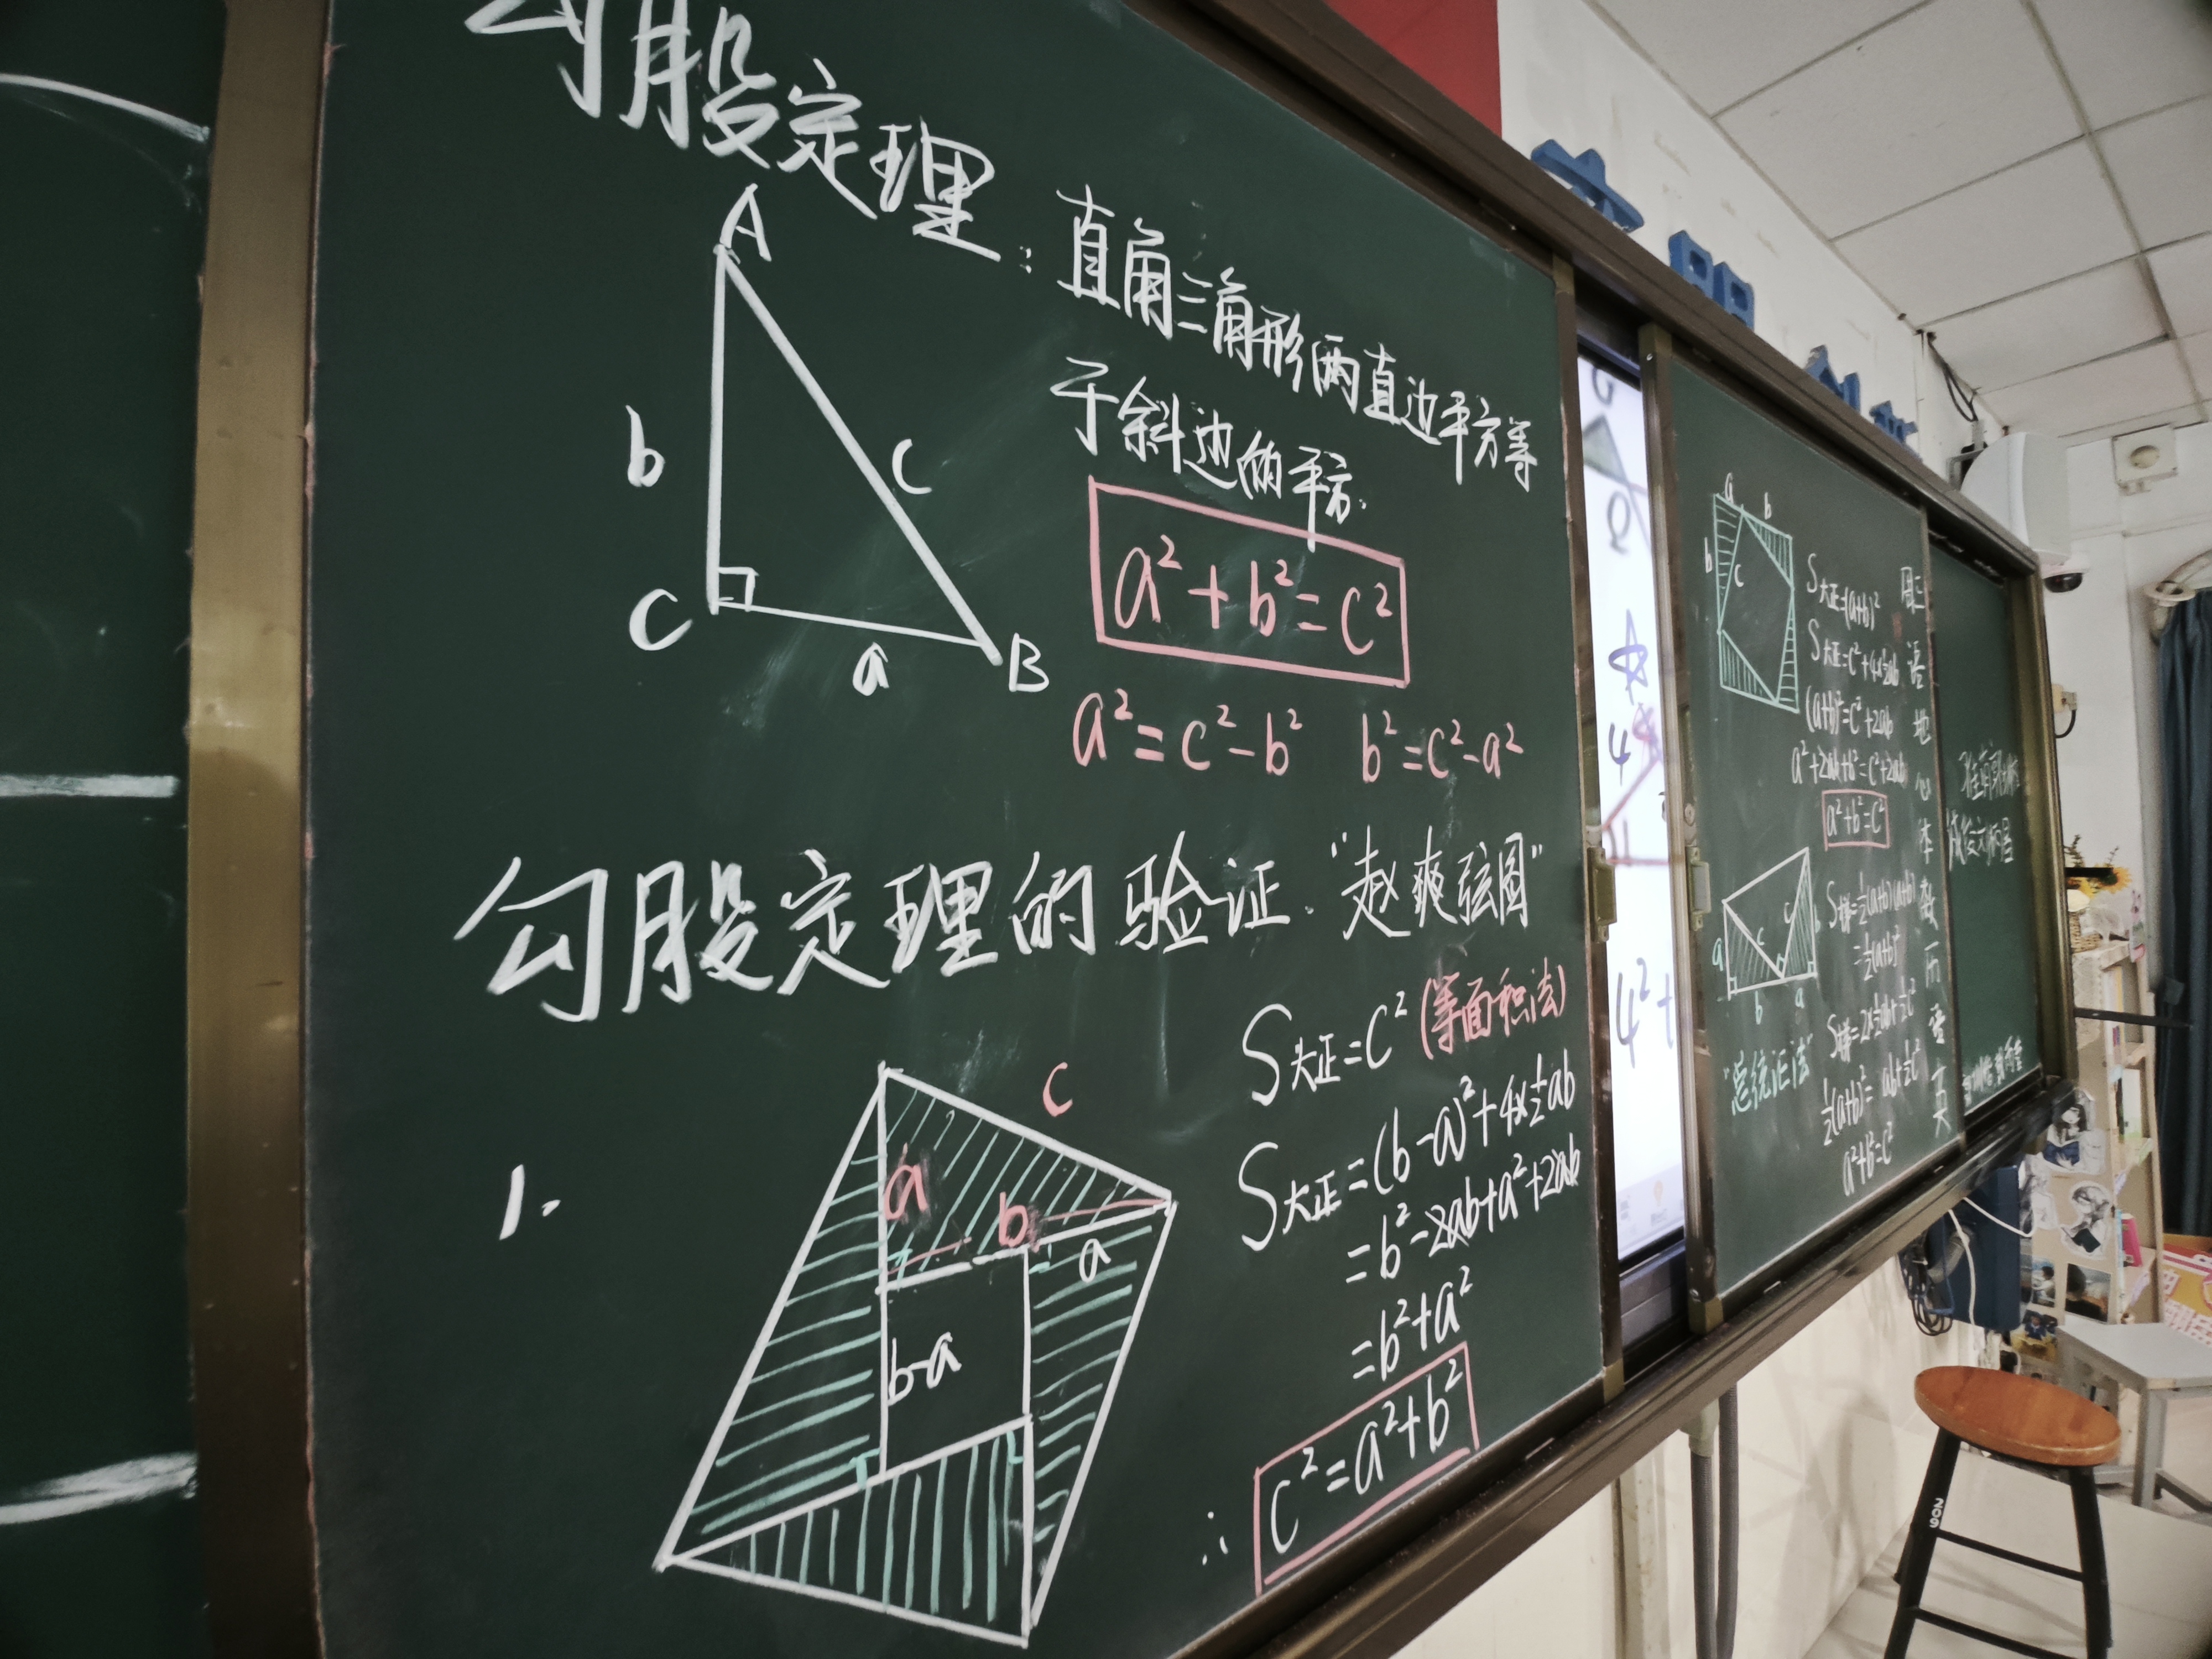 勾股定理:直角三角形两直边平方等
于斜边的平方.
A
b
c
C
a
B
a²+b²=c²
a²=c²-b² b²=c²-a²
勾股定理的验证."赵爽弦图"
1.
c
a
b
a
b-a
S大正=c²(等面积法)
S大正=(b-a)²+4×½ab
=b²-2ab+a²+2ab
=b²+a²
∴ c²=a²+b²
4
4²+
a
b
b
c
S大正=(a+b)²
S大正=c²+4×½ab
(a+b)²=c²+2ab
a²+2ab+b²=c²+2ab
a²+b²=c²
a
c
c
b
b
a
S梯=½(a+b)(a+b)
=½(a+b)²
S梯=2×½ab+½c²
½(a+b)²=ab+½c²
a²+b²=c²
"总统证法"
209